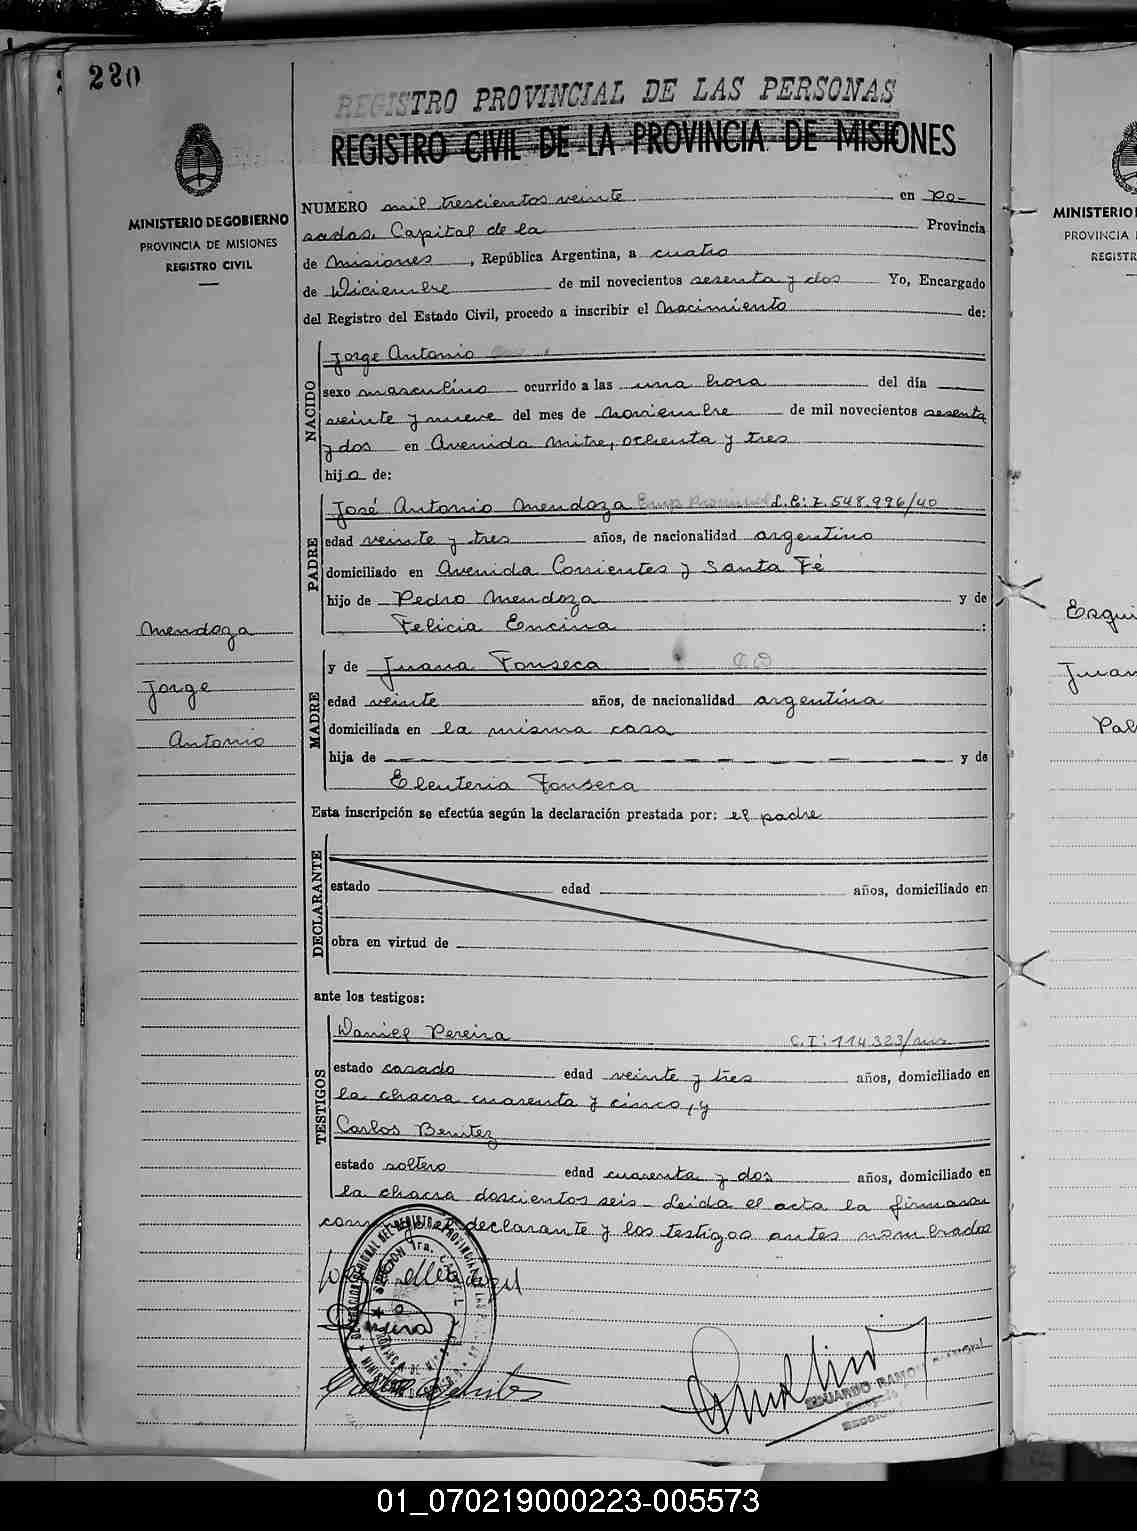 220
REGISTRO PROVINCIAL DE LAS PERSONAS
REGISTRO CIVIL DE LA PROVINCIA DE MISIONES
MINISTERIO DE GOBIERNO
PROVINCIA DE MISIONES
REGISTRO CIVIL
NUMERO mil trescientos veinte en Po-
sadas, Capital de la Provincia
de Misiones, República Argentina, a cuatro
de Diciembre de mil novecientos sesenta y dos Yo, Encargado
del Registro del Estado Civil, procedo a inscribir el Nacimiento de:
NACIDO
Jorge Antonio
sexo masculino ocurrido a las una hora del día
veinte y nueve del mes de Noviembre de mil novecientos sesenta
y dos en Avenida Mitre, ochenta y tres
hijo de:
PADRE
José Antonio Mendoza Emp Provincial L.E: 7.548.996/40
edad veinte y tres años, de nacionalidad argentino
domiciliado en Avenida Corrientes y Santa Fé
hijo de Pedro Mendoza y de
Felicia Encina :
Mendoza
Jorge
Antonio
MADRE
y de Juana Fonseca
edad veinte años, de nacionalidad argentina
domiciliada en la misma casa
hija de y de
Eleuteria Fonseca
Esta inscripción se efectúa según la declaración prestada por: el padre
DECLARANTE
estado edad años, domiciliado en
obra en virtud de
ante los testigos:
TESTIGOS
Daniel Pereira C.I: 114.323/mis
estado casado edad veinte y tres años, domiciliado en
la chacra cuarenta y cinco, y
Carlos Benitez
estado soltero edad cuarenta y dos años, domiciliado en
la chacra doscientos seis - Leida el acta la firmaron
conmigo el declarante y los testigos antes nombrados
EDUARDO RAMON
MINISTERIO
PROVINCIA
REGISTR
Esqui
Juan
Pabl
01_070219000223-005573